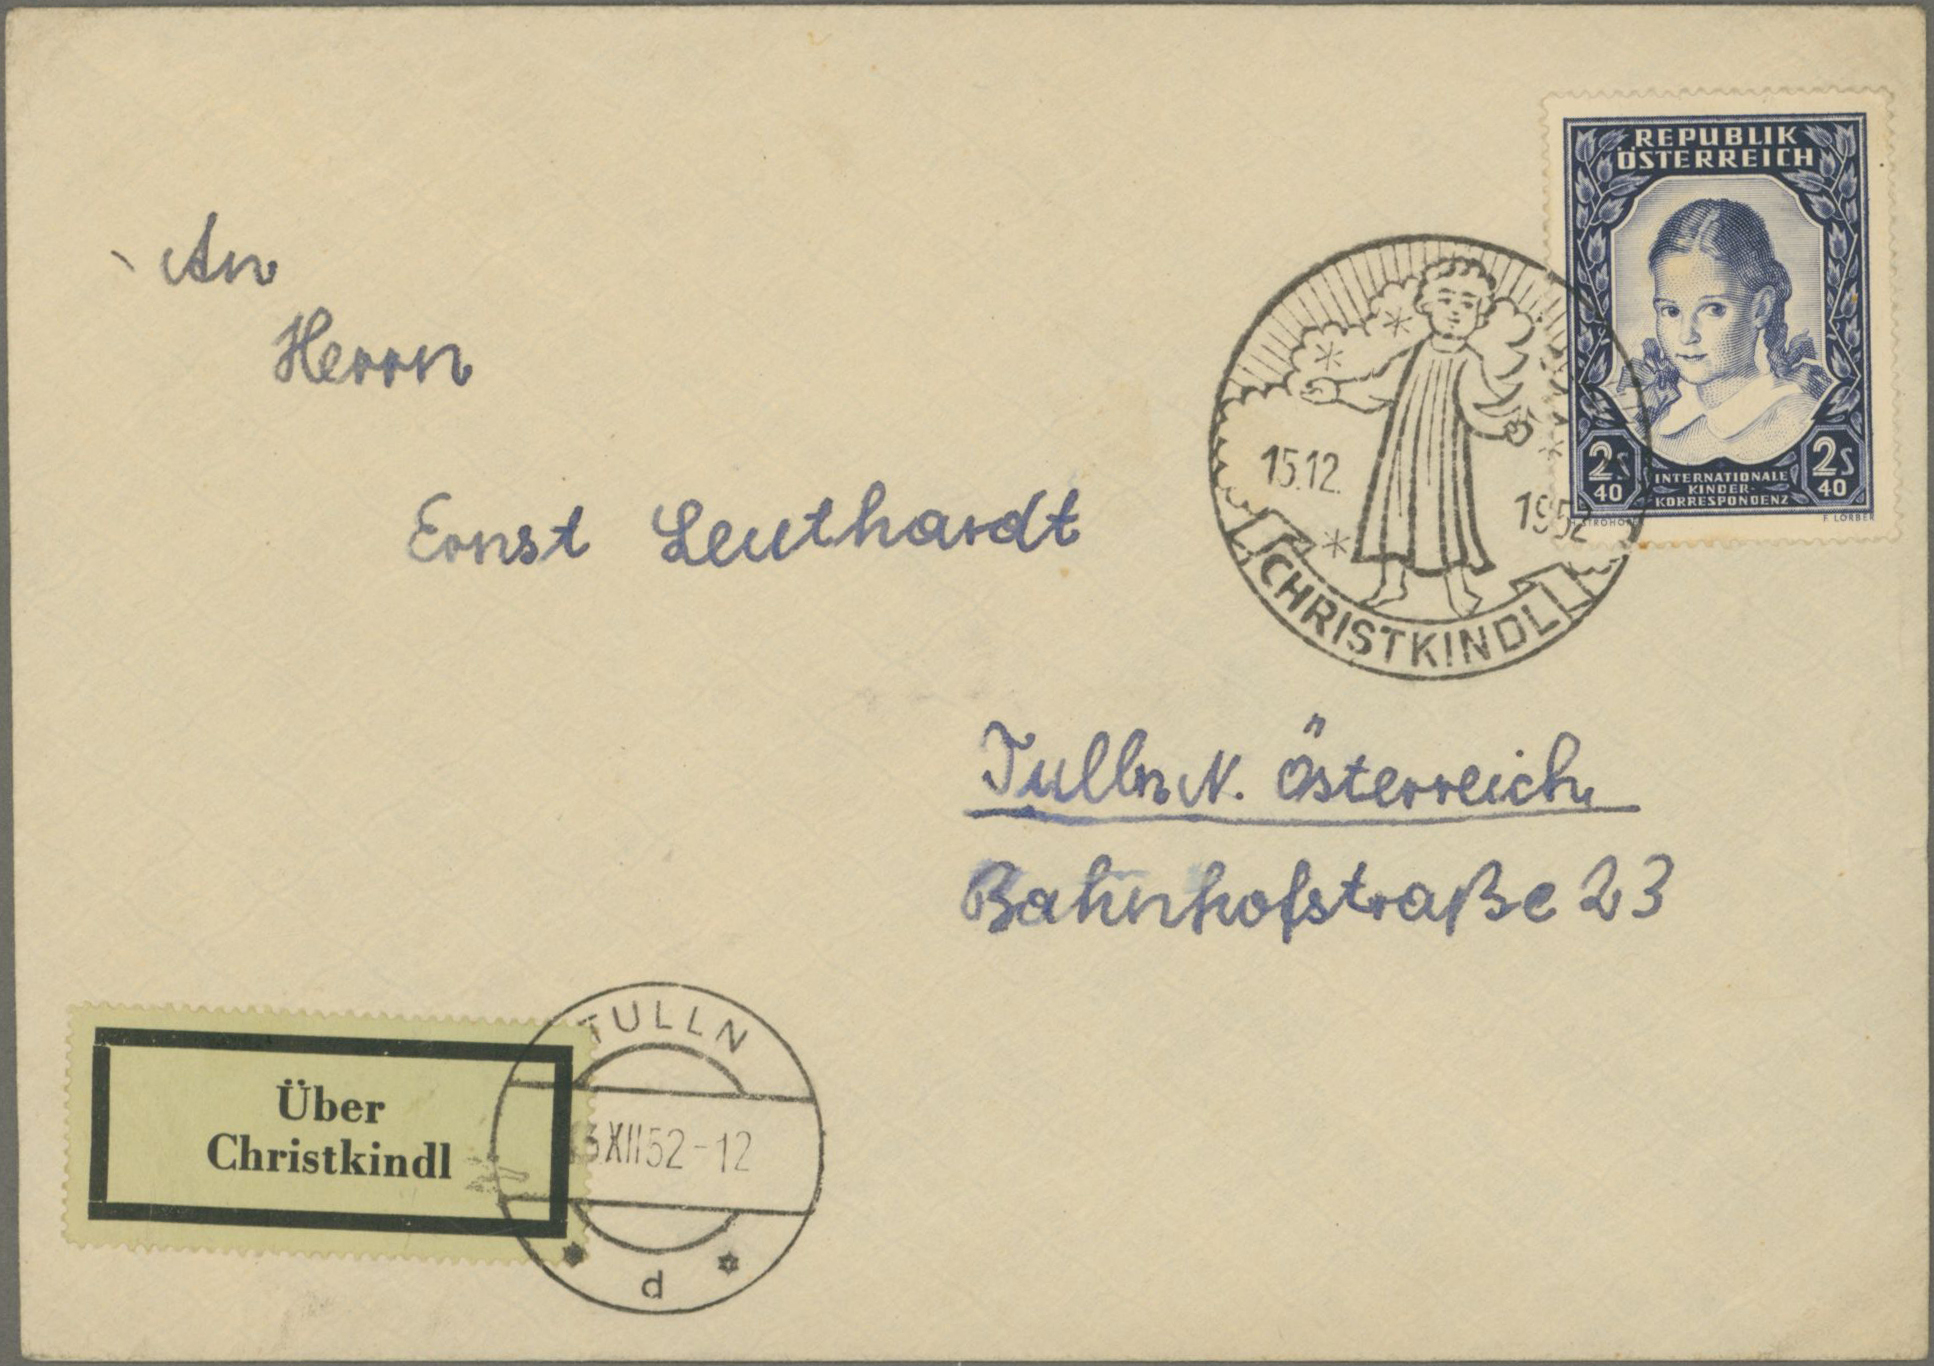 REPUBLIK
ÖSTERREICH
2S
40
INTERNATIONALE
KINDER-
KORRESPONDENZ
2S
40
F. LORBER
An
Herrn
Ernst Leuthardt
15.12.
1952
CHRISTKINDL
Tulln N. Österreich
Bahnhofstraße 23
Über
Christkindl
TULLN
XII52-12
d